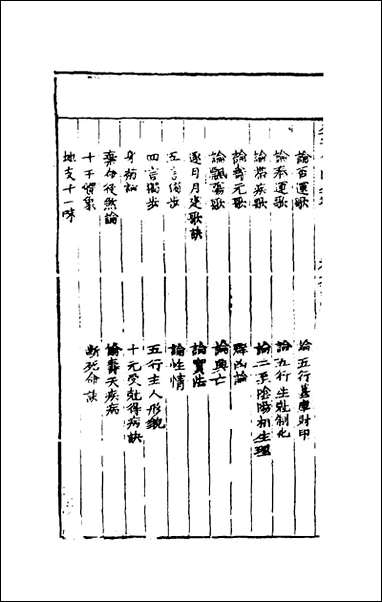 論百運歌　論五行墓庫財印
論運歌　論五行生尅制化
論帶疾歌　論二至陰陽相生理
論壽元歌　凶論
論飄蕩歌　論興亡
逐日月定歌訣　論寶法
五言獨步　論性情
四言獨步　五行主人形貌
身弱論　十元受尅得病訣
棄命從煞論　論壽夭疾病
十干體象　斷死命訣
地支十二